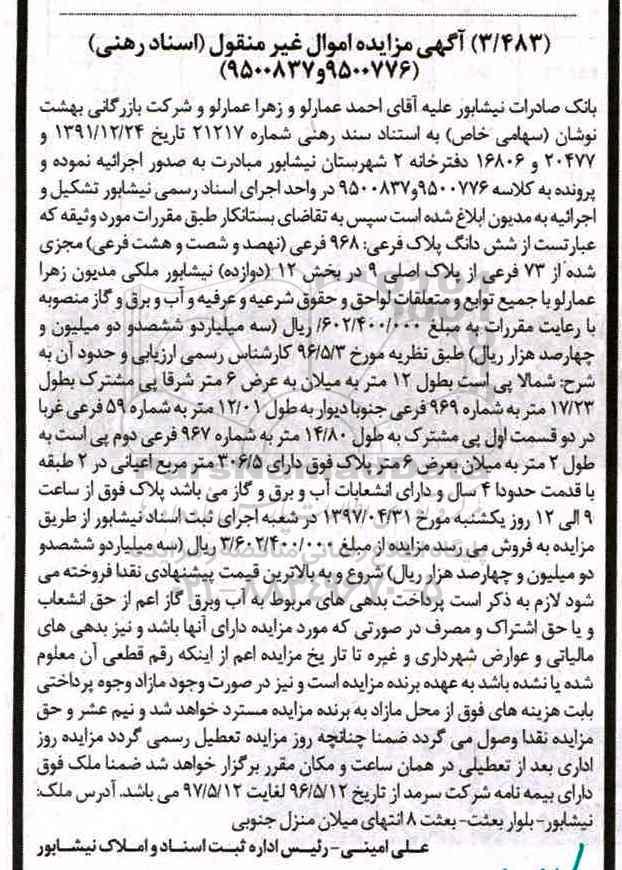 (۳/۴۸۳) آگهی مزایده اموال غیر منقول (اسناد رهنی)
(۹۵۰۰۷۷۶و۹۵۰۰۸۳۷)
بانک صادرات نیشابور علیه آقای احمد عمارلو و زهرا عمارلو و شرکت بازرگانی بهشت
نوشان (سهامی خاص) به استناد سند رهنی شماره ۲۱۲۱۷ تاریخ ۱۳۹۱/۱۲/۲۴ و
۲۰۴۷۷ و ۱۶۸۰۶ دفترخانه ۲ شهرستان نیشابور مبادرت به صدور اجرائیه نموده و
پرونده به کلاسه ۹۵۰۰۷۷۶و۹۵۰۰۸۳۷ در واحد اجرای اسناد رسمی نیشابور تشکیل و
اجرائیه به مدیون ابلاغ شده است سپس به تقاضای بستانکار طبق مقررات مورد وثیقه که
عبارتست از شش دانگ پلاک فرعی: ۹۶۸ فرعی (نهصد و شصت و هشت فرعی) مجزی
شده از ۷۳ فرعی از پلاک اصلی ۹ در بخش ۱۲ (دوازده) نیشابور ملکی مدیون زهرا
عمارلو با جمیع توابع و متعلقات لواحق و حقوق شرعیه و عرفیه و آب و برق و گاز منصوبه
با رعایت مقررات به مبلغ ۶۰۲/۴۰۰/۰۰۰/ ریال (سه میلیاردو ششصدو دو میلیون و
چهارصد هزار ریال) طبق نظریه مورخ ۹۶/۵/۳ کارشناس رسمی ارزیابی و حدود آن به
شرح: شمالا پی است بطول ۱۲ متر به میلان به عرض ۶ متر شرقا پی مشترک بطول
۱۷/۲۳ متر به شماره ۹۶۹ فرعی جنوبا دیوار به طول ۱۲/۰۱ متر به شماره ۵۹ فرعی غربا
در دو قسمت اول پی مشترک به طول ۱۴/۸۰ متر به شماره ۹۶۷ فرعی دوم پی است به
طول ۲ متر به میلان بعرض ۶ متر پلاک فوق دارای ۳۰۶/۵ متر مربع اعیانی در ۲ طبقه
با قدمت حدودا ۴ سال و دارای انشعابات آب و برق و گاز می باشد پلاک فوق از ساعت
۹ الی ۱۲ روز یکشنبه مورخ ۱۳۹۷/۰۴/۳۱ در شعبه اجرای ثبت اسناد نیشابور از طریق
مزایده به فروش می رسد مزایده از مبلغ ۳/۶۰۲/۴۰۰/۰۰۰ ریال (سه میلیاردو ششصدو
دو میلیون و چهارصد هزار ریال) شروع و به بالاترین قیمت پیشنهادی نقدا فروخته می
شود لازم به ذکر است پرداخت بدهی های مربوط به آب وبرق گاز اعم از حق انشعاب
و یا حق اشتراک و مصرف در صورتی که مورد مزایده دارای آنها باشد و نیز بدهی های
مالیاتی و عوارض شهرداری و غیره تا تار یخ مزایده اعم از اینکه رقم قطعی آن معلوم
شده یا نشده باشد به عهده برنده مزایده است و نیز در صورت وجود مازاد وجوه پرداختی
بابت هزینه های فوق از محل مازاد به برنده مزایده مسترد خواهد شد و نیم عشر و حق
مزایده نقدا وصول می گردد ضمنا چنانچه روز مزایده تعطیل رسمی گردد مزایده روز
اداری بعد از تعطیلی در همان ساعت و مکان مقرر برگزار خواهد شد ضمنا ملک فوق
دارای بیمه نامه شرکت سرمد از تاریخ ۹۶/۵/۱۲ لغایت ۹۷/۵/۱۲ می باشد. آدرس ملک:
نیشابور- بلوار بعثت- بعثت ۸ انتهای میلان منزل جنوبی
علی امینی- رئیس اداره ثبت اسناد و املاک نیشابور